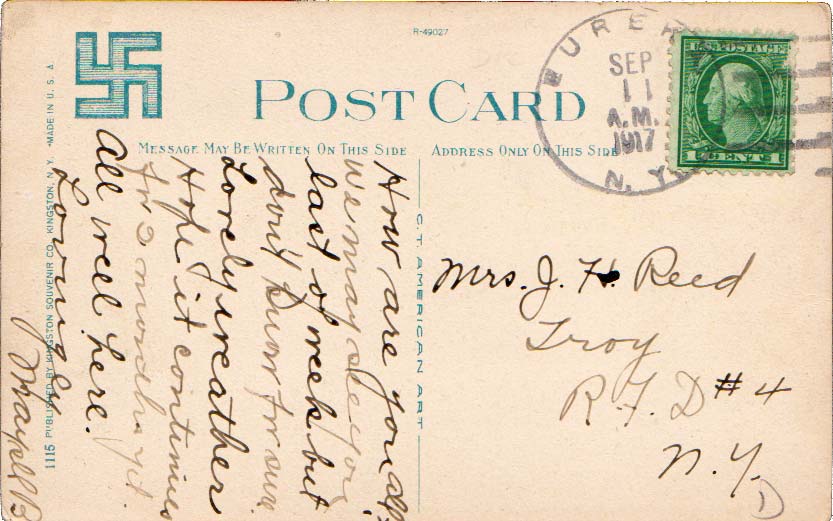 R-49027
POST CARD
MESSAGE MAY BE WRITTEN ON THIS SIDE
ADDRESS ONLY ON THIS SIDE
SEP
11
A.M.
1917
N. Y.
U.S. POSTAGE
1 CENT 1
How are you all?
We may see you
last of week but
don't know for sure
Lovely weather
Hope it continues
for a month yet.
All well here.
Lovingly
Mrs. J. H. Reed
Troy
R. F. D #4
N. Y.
C.T. AMERICAN ART
1115 PUBLISHED BY KINGSTON SOUVENIR CO., KINGSTON, N. Y. MADE IN U. S. A.